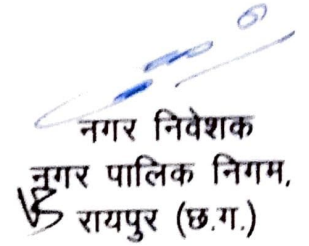 नगर निवेशक
नगर पालिक निगम,
रायपुर (छ.ग.)